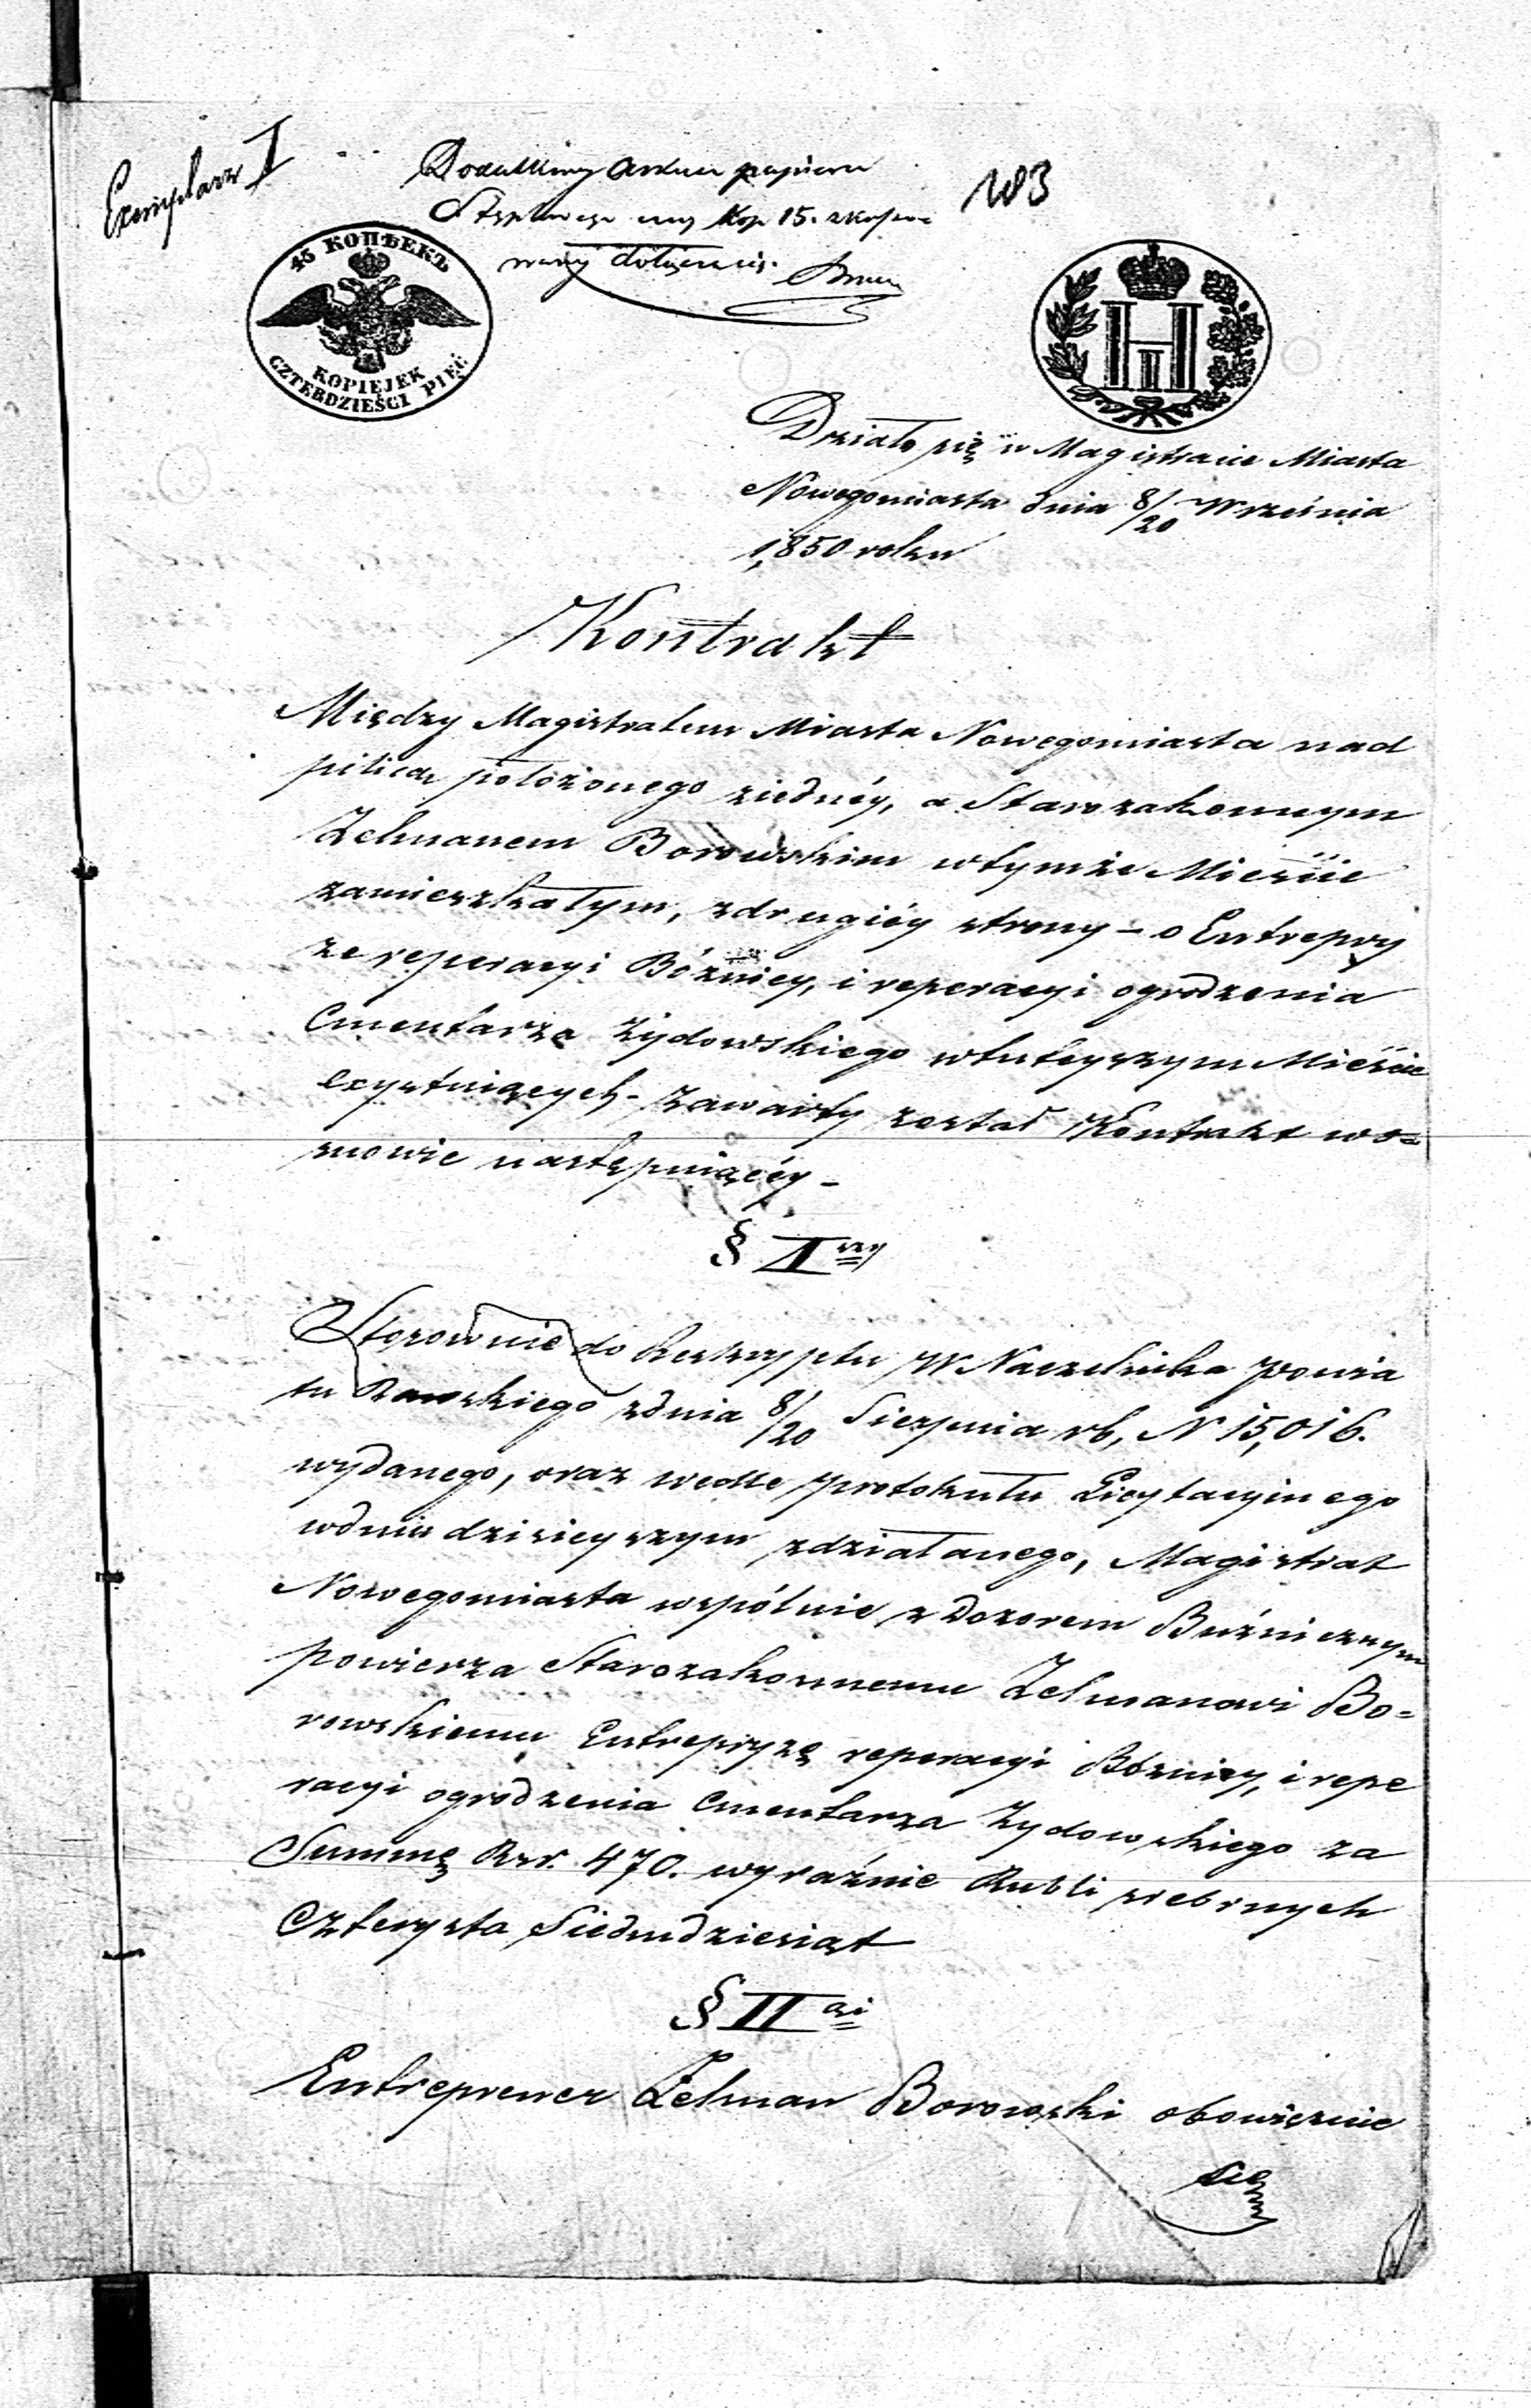 Exemplarz I
Dodatkowy arkusz papieru
Stęplowego ceny Kop 15. skasso-
wany dołącza się.
103
45 КОПѢЕКЪ
KOPIEJEK
CZTERDZIEŚCI PIĘĆ
Działo się w Magistracie Miasta
Nowegomiasta dnia 8/20 Września
1,850 roku
Kontrakt
Między Magistratem Miasta Nowegomiasta nad
pilicą położonego ziednéy, a Starozakonnym
Zelmanem Borowskim wtymże Mieście
zamieszkałym, zdrugiéy strony – o Entrepry
ze reperacyi Bóżnicy, i reperacyi ogrodzenia
Cmentarza żydowskiego wtuteyszym Mieście
exystuiących – zawarty został Kontrakt wo=
snowie następuiącéy –
§ I wszy
Stosownie do Reskryptu W Naczelnika powia
tu Rawskiego zdnia 8/20 Sierpnia rb, N 15,016.
wydanego, oraz wedle protokułu Licytacyinego
wdniu dzisieyszym zdziałanego, Magistrat
Nowegomiasta wspólnie z Dozorem Bużniczym
powierza Starozakonnemu Zelmanowi Bo=
rowskiemu Entrepryzę reperacyi Bóżnicy, i repe
racyi ogrodzenia Cmentarza żydowskiego za
Summę Rsr. 470. wyraźnie Rubli srebrnych
Czterysta Siedmdziesiąt
§ II gi
Entreprener Zelman Borowski obowięzuie
się